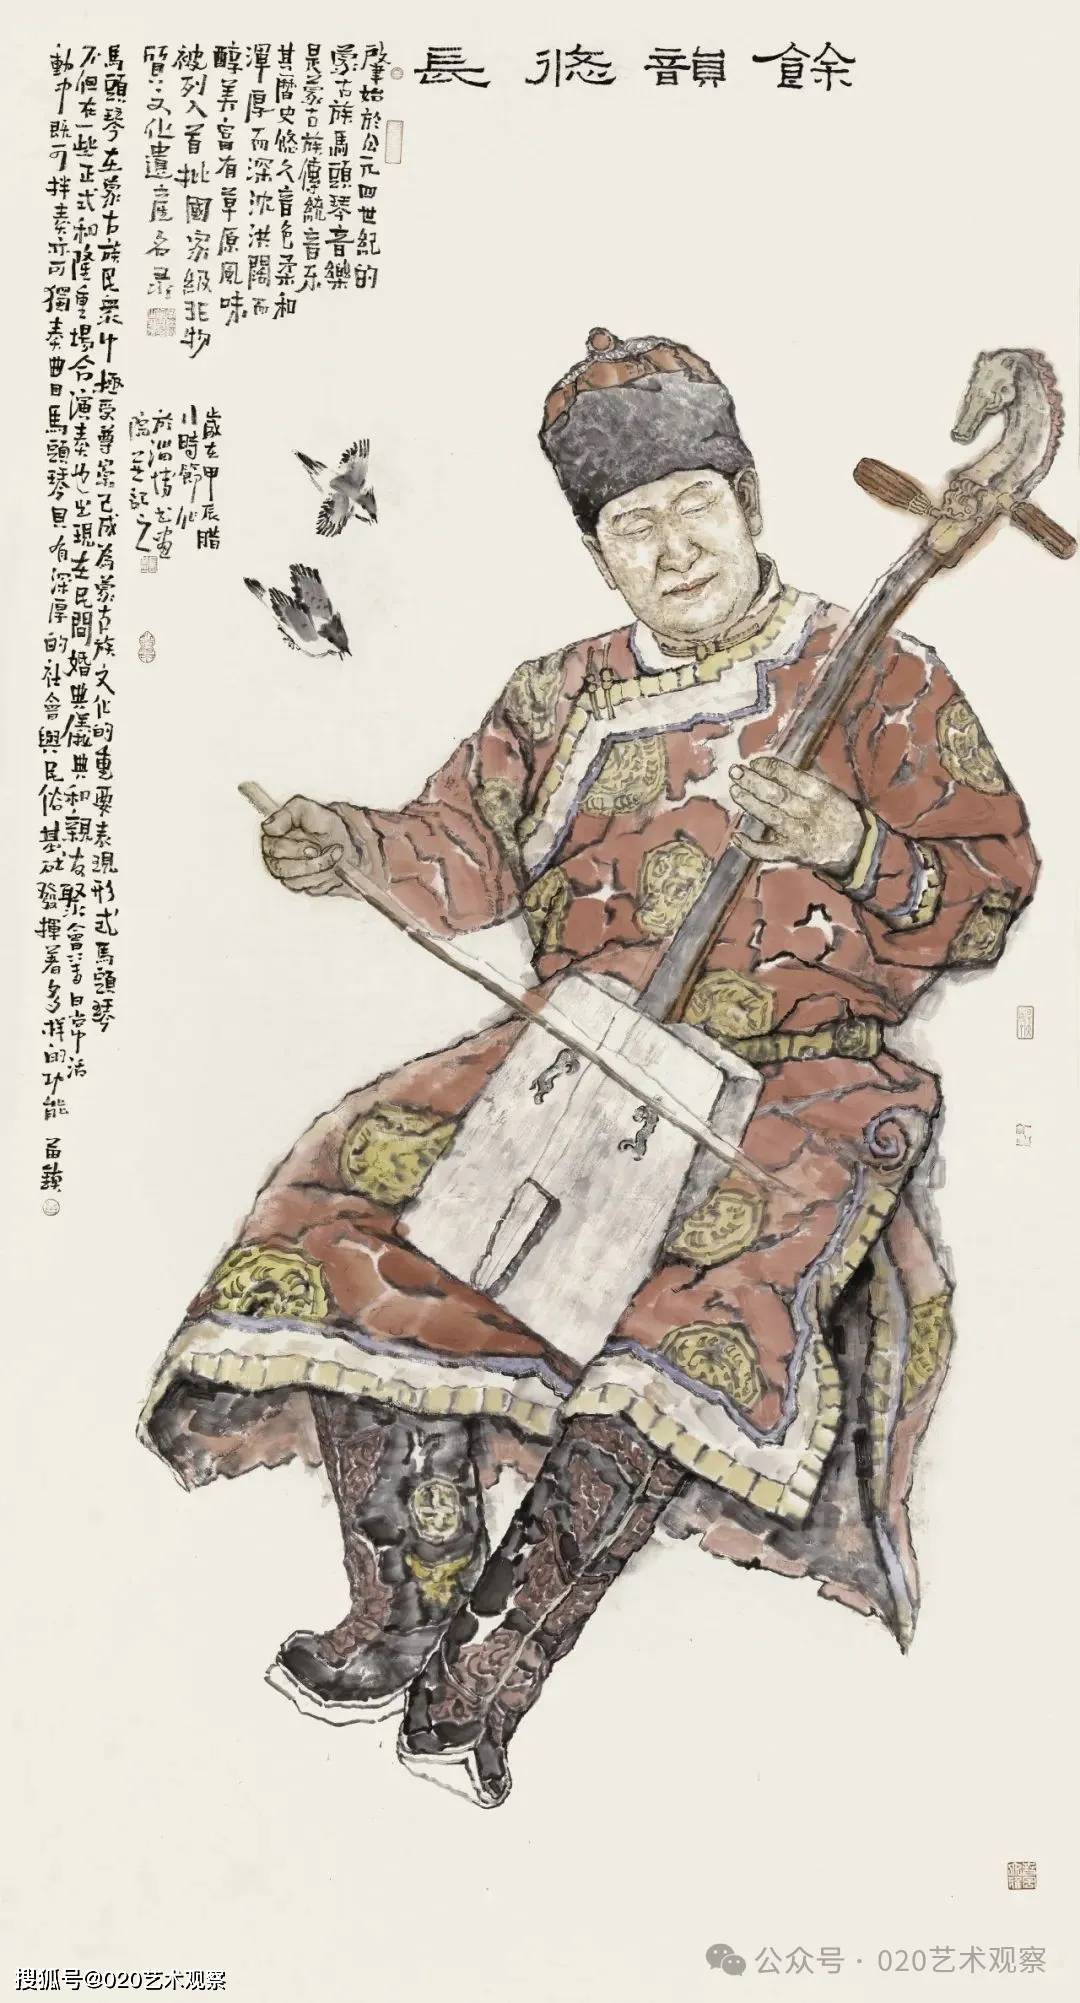 餘韻悠長
肇始於公元四世紀的
蒙古族馬頭琴音樂
是蒙古族傳統音乐
其曆史悠久音色柔和
渾厚而深沈洪闊而
醇美富有草原風味
被列入首批國家級非物
質文化遺產名录
歲在甲辰腊
八時節作
於淄博书画
院并記之
馬頭琴在蒙古族民衆中極受尊崇已成為蒙古族文化的重要表現形式馬頭琴
不但在一些正式和隆重場合演奏也出現在民間婚典儀典和親友聚會等日常活
動中既可拌奏亦可獨奏曲目馬頭琴具有深厚的社會與民俗基础發揮着多样的功能
搜狐号@020艺术观察
公众号·020艺术观察